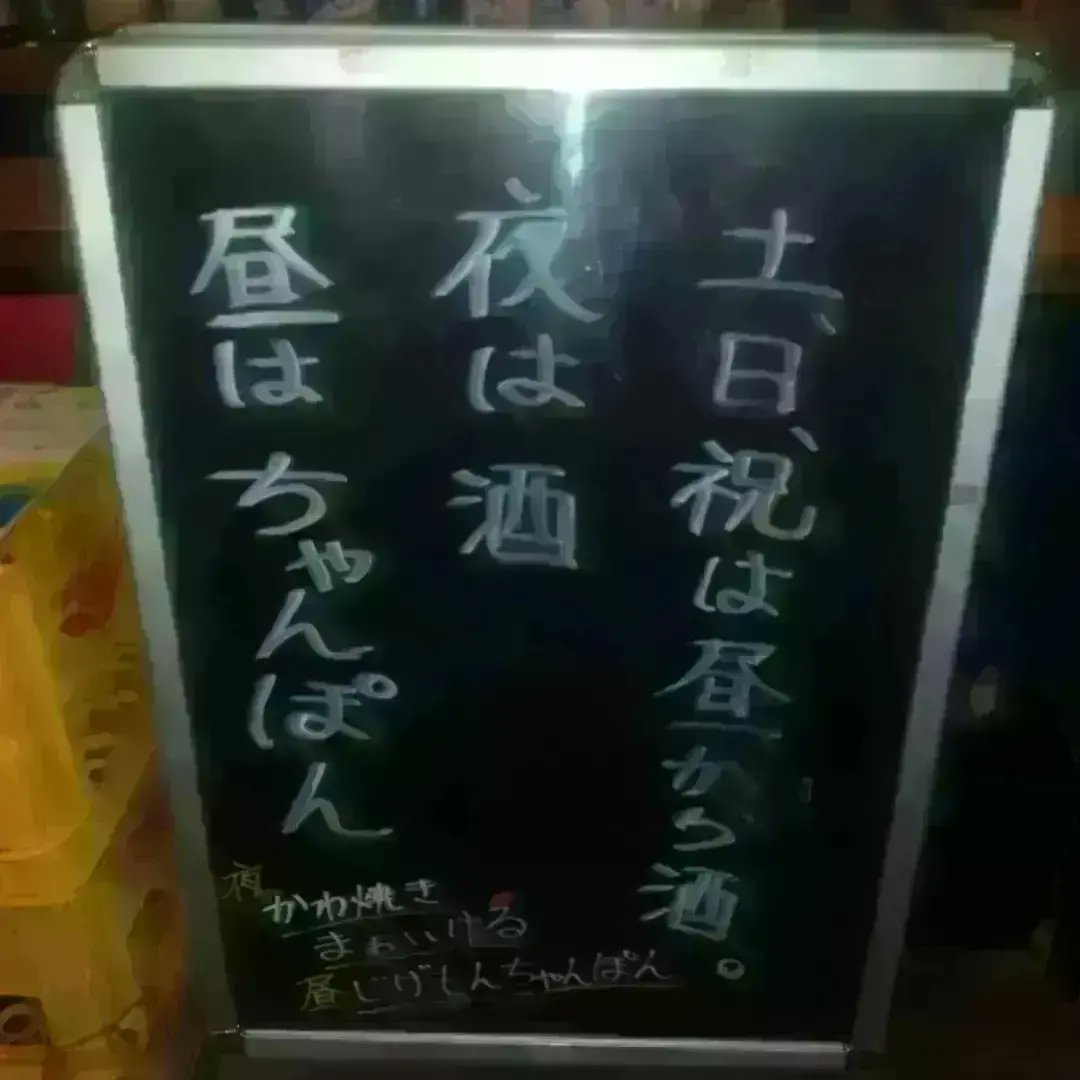 土、日、祝は昼から酒。
夜は酒
昼はちゃんぽん
夜 かわ焼き
いける
昼 じげもんちゃんぽん